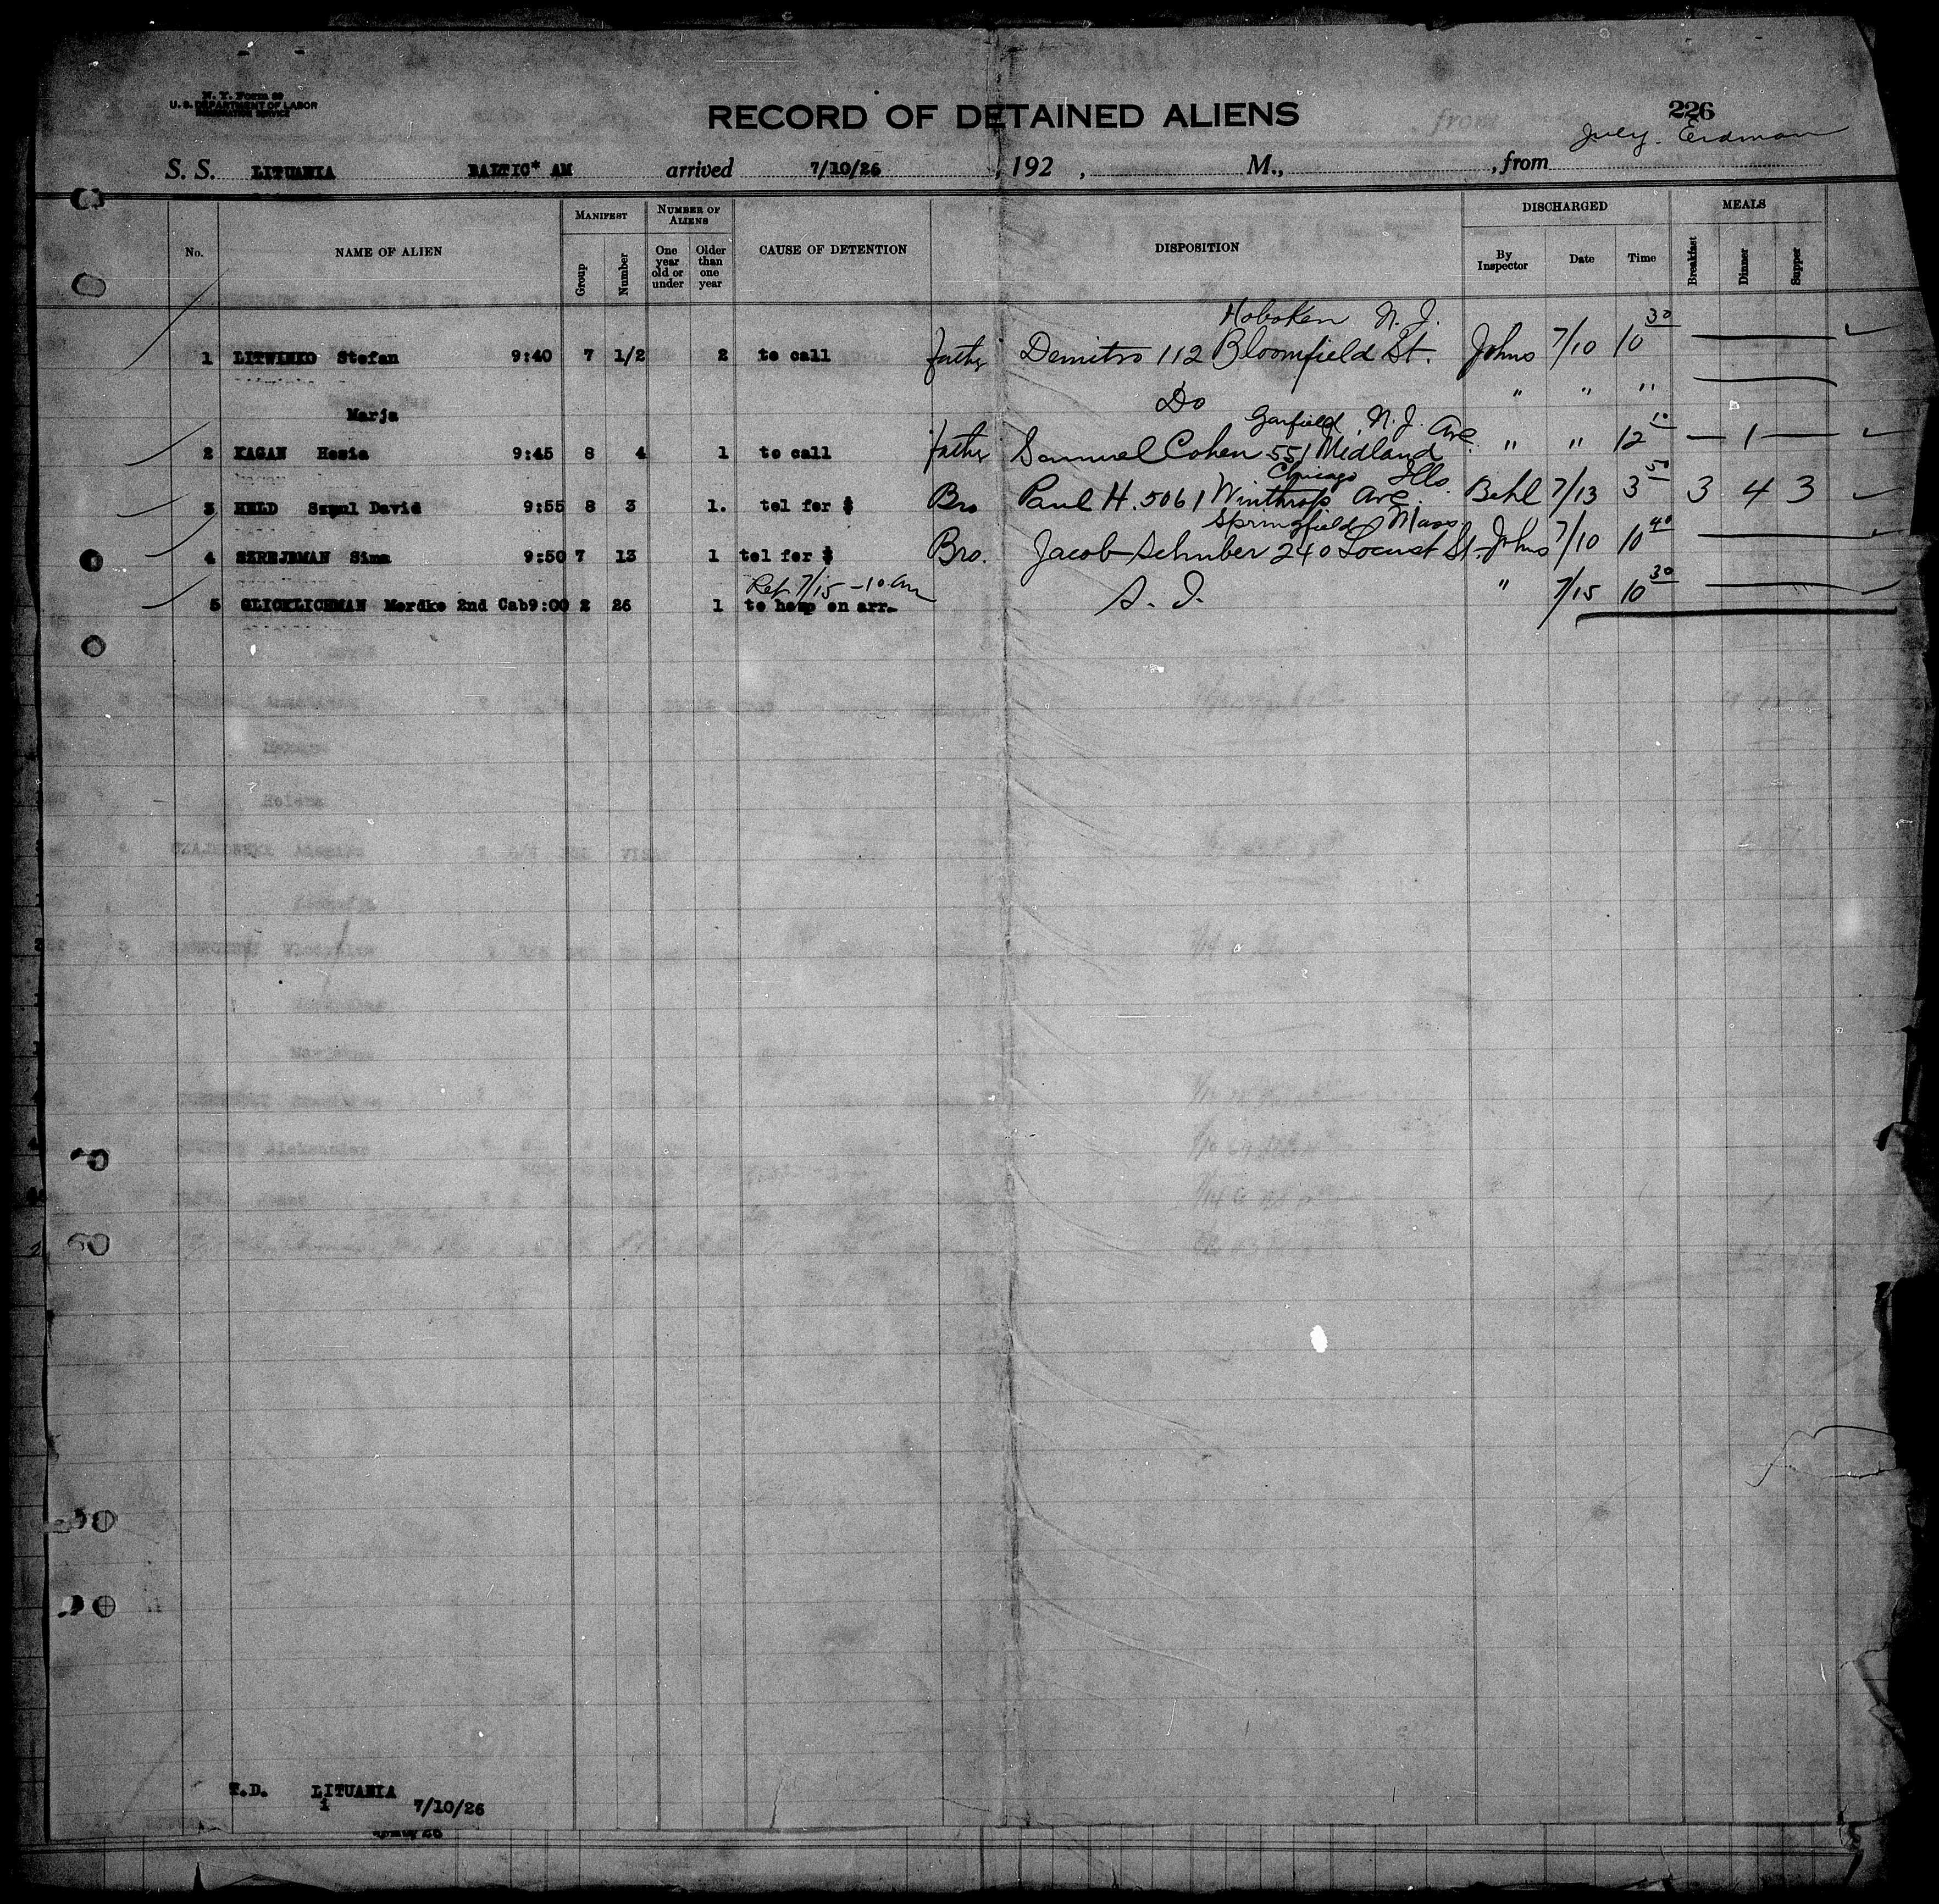 N. Y. Form 99
U. S. DEPARTMENT OF LABOR
IMMIGRATION SERVICE
RECORD OF DETAINED ALIENS
226
S. S. LITUANIA BALTIC* AM arrived 7/10/26 , 192 , M., , from Erdman
No. NAME OF ALIEN MANIFEST Group Number NUMBER OF ALIENS One year old or under Older than one year CAUSE OF DETENTION DISPOSITION DISCHARGED By Inspector Date Time MEALS Breakfast Dinner Supper
Hoboken N. J.
1 LITWINKO Stefan 9:40 7 1/2 2 to call Father Demitro 112 Bloomfield St. Johns 7/10 10 30
Do " " "
Marja
Garfield N. J.
2 KAGAN Hesia 9:45 8 4 1 to call Father Samuel Cohen 551 Midland Ave. " " 12 10 — 1 —
Chicago Ills
3 HELD Szmul David 9:55 8 3 1. tel for $ Bro Paul H. 5061 Winthrop Ave. Behl 7/13 3 50 3 4 3
Springfield Mass
4 SZREJBMAN Sima 9:50 7 13 1 tel for $ Bro. Jacob Schuber 240 Locust St. Johns 7/10 10 40
Ret 7/15 - 10 am
5 GLICKLICHMAN Mordko 2nd Cab 9:00 2 26 1 to hosp on arr. S. I. " 7/15 10 30
T.D. LITUANIA
1 7/10/26